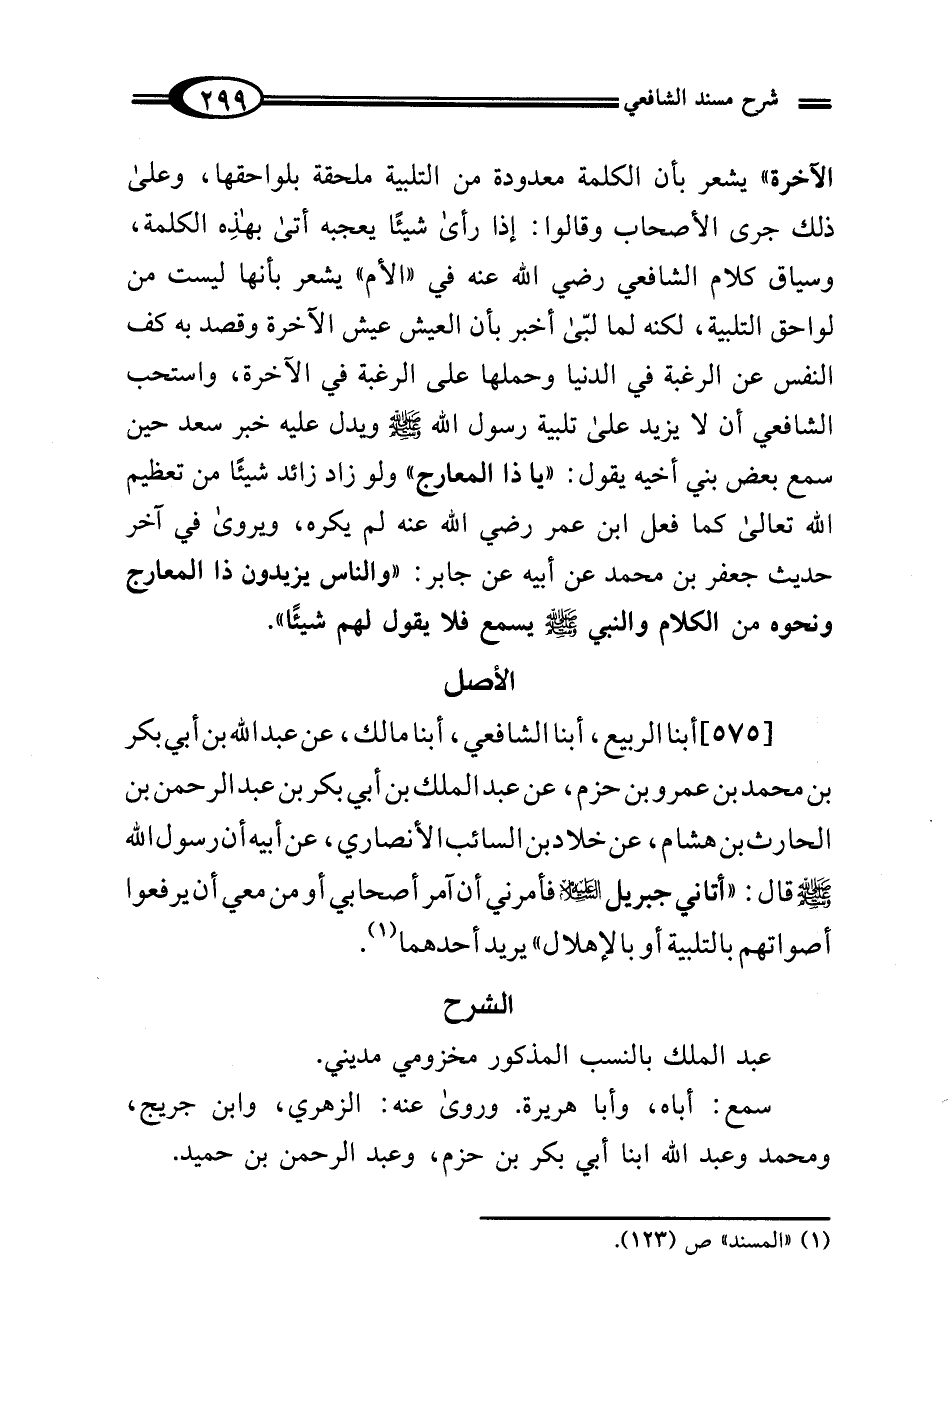 شرح مسند الشافعي ٢٩٩
الآخرة» يشعر بأن الكلمة معدودة من التلبية ملحقة بلواحقها، وعلىٰ
ذلك جرى الأصحاب وقالوا: إذا رأىٰ شيئًا يعجبه أتىٰ بهٰذِه الكلمة،
وسياق كلام الشافعي رضي الله عنه في «الأم» يشعر بأنها ليست من
لواحق التلبية، لكنه لما لبّىٰ أخبر بأن العيش عيش الآخرة وقصد به كف
النفس عن الرغبة في الدنيا وحملها على الرغبة في الآخرة، واستحب
الشافعي أن لا يزيد علىٰ تلبية رسول الله ﷺ ويدل عليه خبر سعد حين
سمع بعض بني أخيه يقول: «يا ذا المعارج» ولو زاد زائد شيئًا من تعظيم
الله تعالىٰ كما فعل ابن عمر رضي الله عنه لم يكره، ويروىٰ في آخر
حديث جعفر بن محمد عن أبيه عن جابر: «والناس يزيدون ذا المعارج
ونحوه من الكلام والنبي ﷺ يسمع فلا يقول لهم شيئًا».
الأصل
[٥٧٥] أبنا الربيع، أبنا الشافعي، أبنا مالك، عن عبد الله بن أبي بكر
بن محمد بن عمرو بن حزم، عن عبد الملك بن أبي بكر بن عبد الرحمن بن
الحارث بن هشام، عن خلاد بن السائب الأنصاري، عن أبيه أن رسول الله
ﷺ قال: «أتاني جبريل العَلَيْهِ السَّلَام فأمرني أن آمر أصحابي أو من معي أن يرفعوا
أصواتهم بالتلبية أو بالإهلال» يريد أحدهما(١).
الشرح
عبد الملك بالنسب المذكور مخزومي مديني.
سمع: أباه، وأبا هريرة. وروىٰ عنه: الزهري، وابن جريج،
ومحمد وعبد الله ابنا أبي بكر بن حزم، وعبد الرحمن بن حميد.
(١) «المسند» ص (١٢٣).